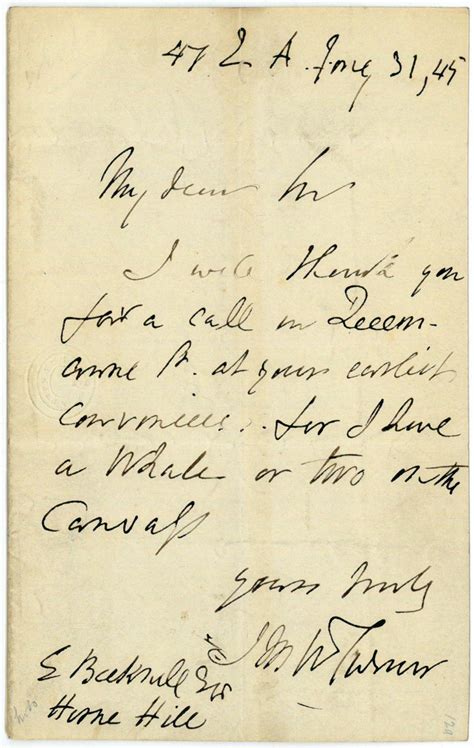 47 Q A Jany 31, 45
My dear Sir
I will thank you
for a call in Queen
anne St. at your earliest
convenience. for I have
a Whale or two on the
Canvass
Yours truly
J M W Turner
E Bicknell Esq
Herne Hill